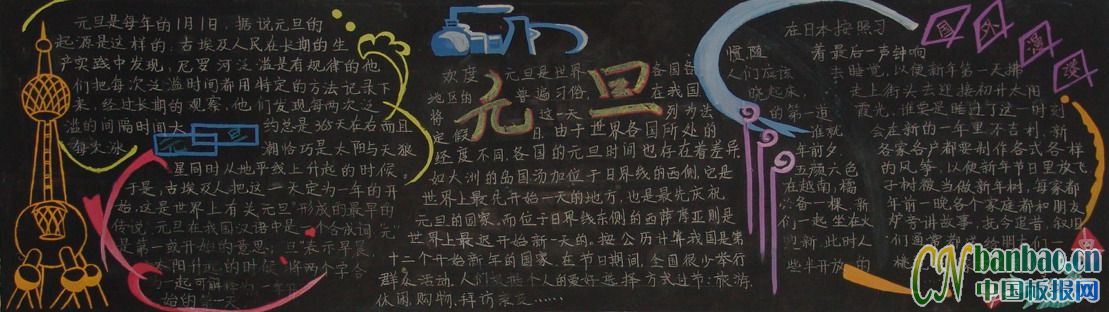 元旦是每年的1月1日,据说元旦的
起源是这样的:古埃及人民在长期的生
产实践中发现,尼罗河泛滥是有规律的他
们把每次泛滥时间都用特定的方法记录下
来,经过长期的观察,他们发现每两次泛
滥的间隔时间大约总是365天在右而且
每次
潮恰巧是太阳与天狼
星同时从地平线上升起的时候。
于是,古埃及人把这一天定为一年的开
始,这是世界上有关元旦"形成的最早的
传说"元旦在我国汉语中是一个合成词"元"
是第一或开始的意思;"旦"表示早晨
太阳升起的时候"将两个字合
一起可解释为一年
始的第一天
元旦
元旦
欢度元旦是世界各国各
地区的普遍习俗,在我国
将这一天列为法
定假日由于世界各国所处的
经度不同,各国的元旦时间也存在着差异.
如大洲的岛国汤加位于日界线的西侧,它是
世界上最先开始一天的地方,也是最先庆祝
元旦的国家,而位于日界线东侧的西萨摩亚则是
世界上最迟开始新一天的。按公历计算我国是第
十二个开始新年的国家,在节日期间,全国很少举行
群众活动,人们按照个人的爱好选择方式过节:旅游,
休闲,购物,拜访亲友……
国外漫谈
在日本按照习
惯,随着最后一声钟响
人们应该去睡觉,以便新年第一天拂
晓起床,走上街头去迎接初升太阳
的第一道霞光,谁要是睡过了这一时刻
谁就会在新的一年里不吉利.新
年前夕,各家各户都要制作各式各样
五颜六色的风筝,以便新年节日里放飞
在越南,橘子树被当做新年树,每家都
一棵,新年前一晚各个家庭都和朋友
们一起坐在火炉旁讲故事,抚今追昔,叙旧
迎新,此时人们
些半开放的桃
banbao.cn
中国板报网